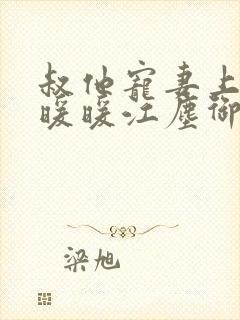 叔他寵妻上
暖暖江塵御
梁旭